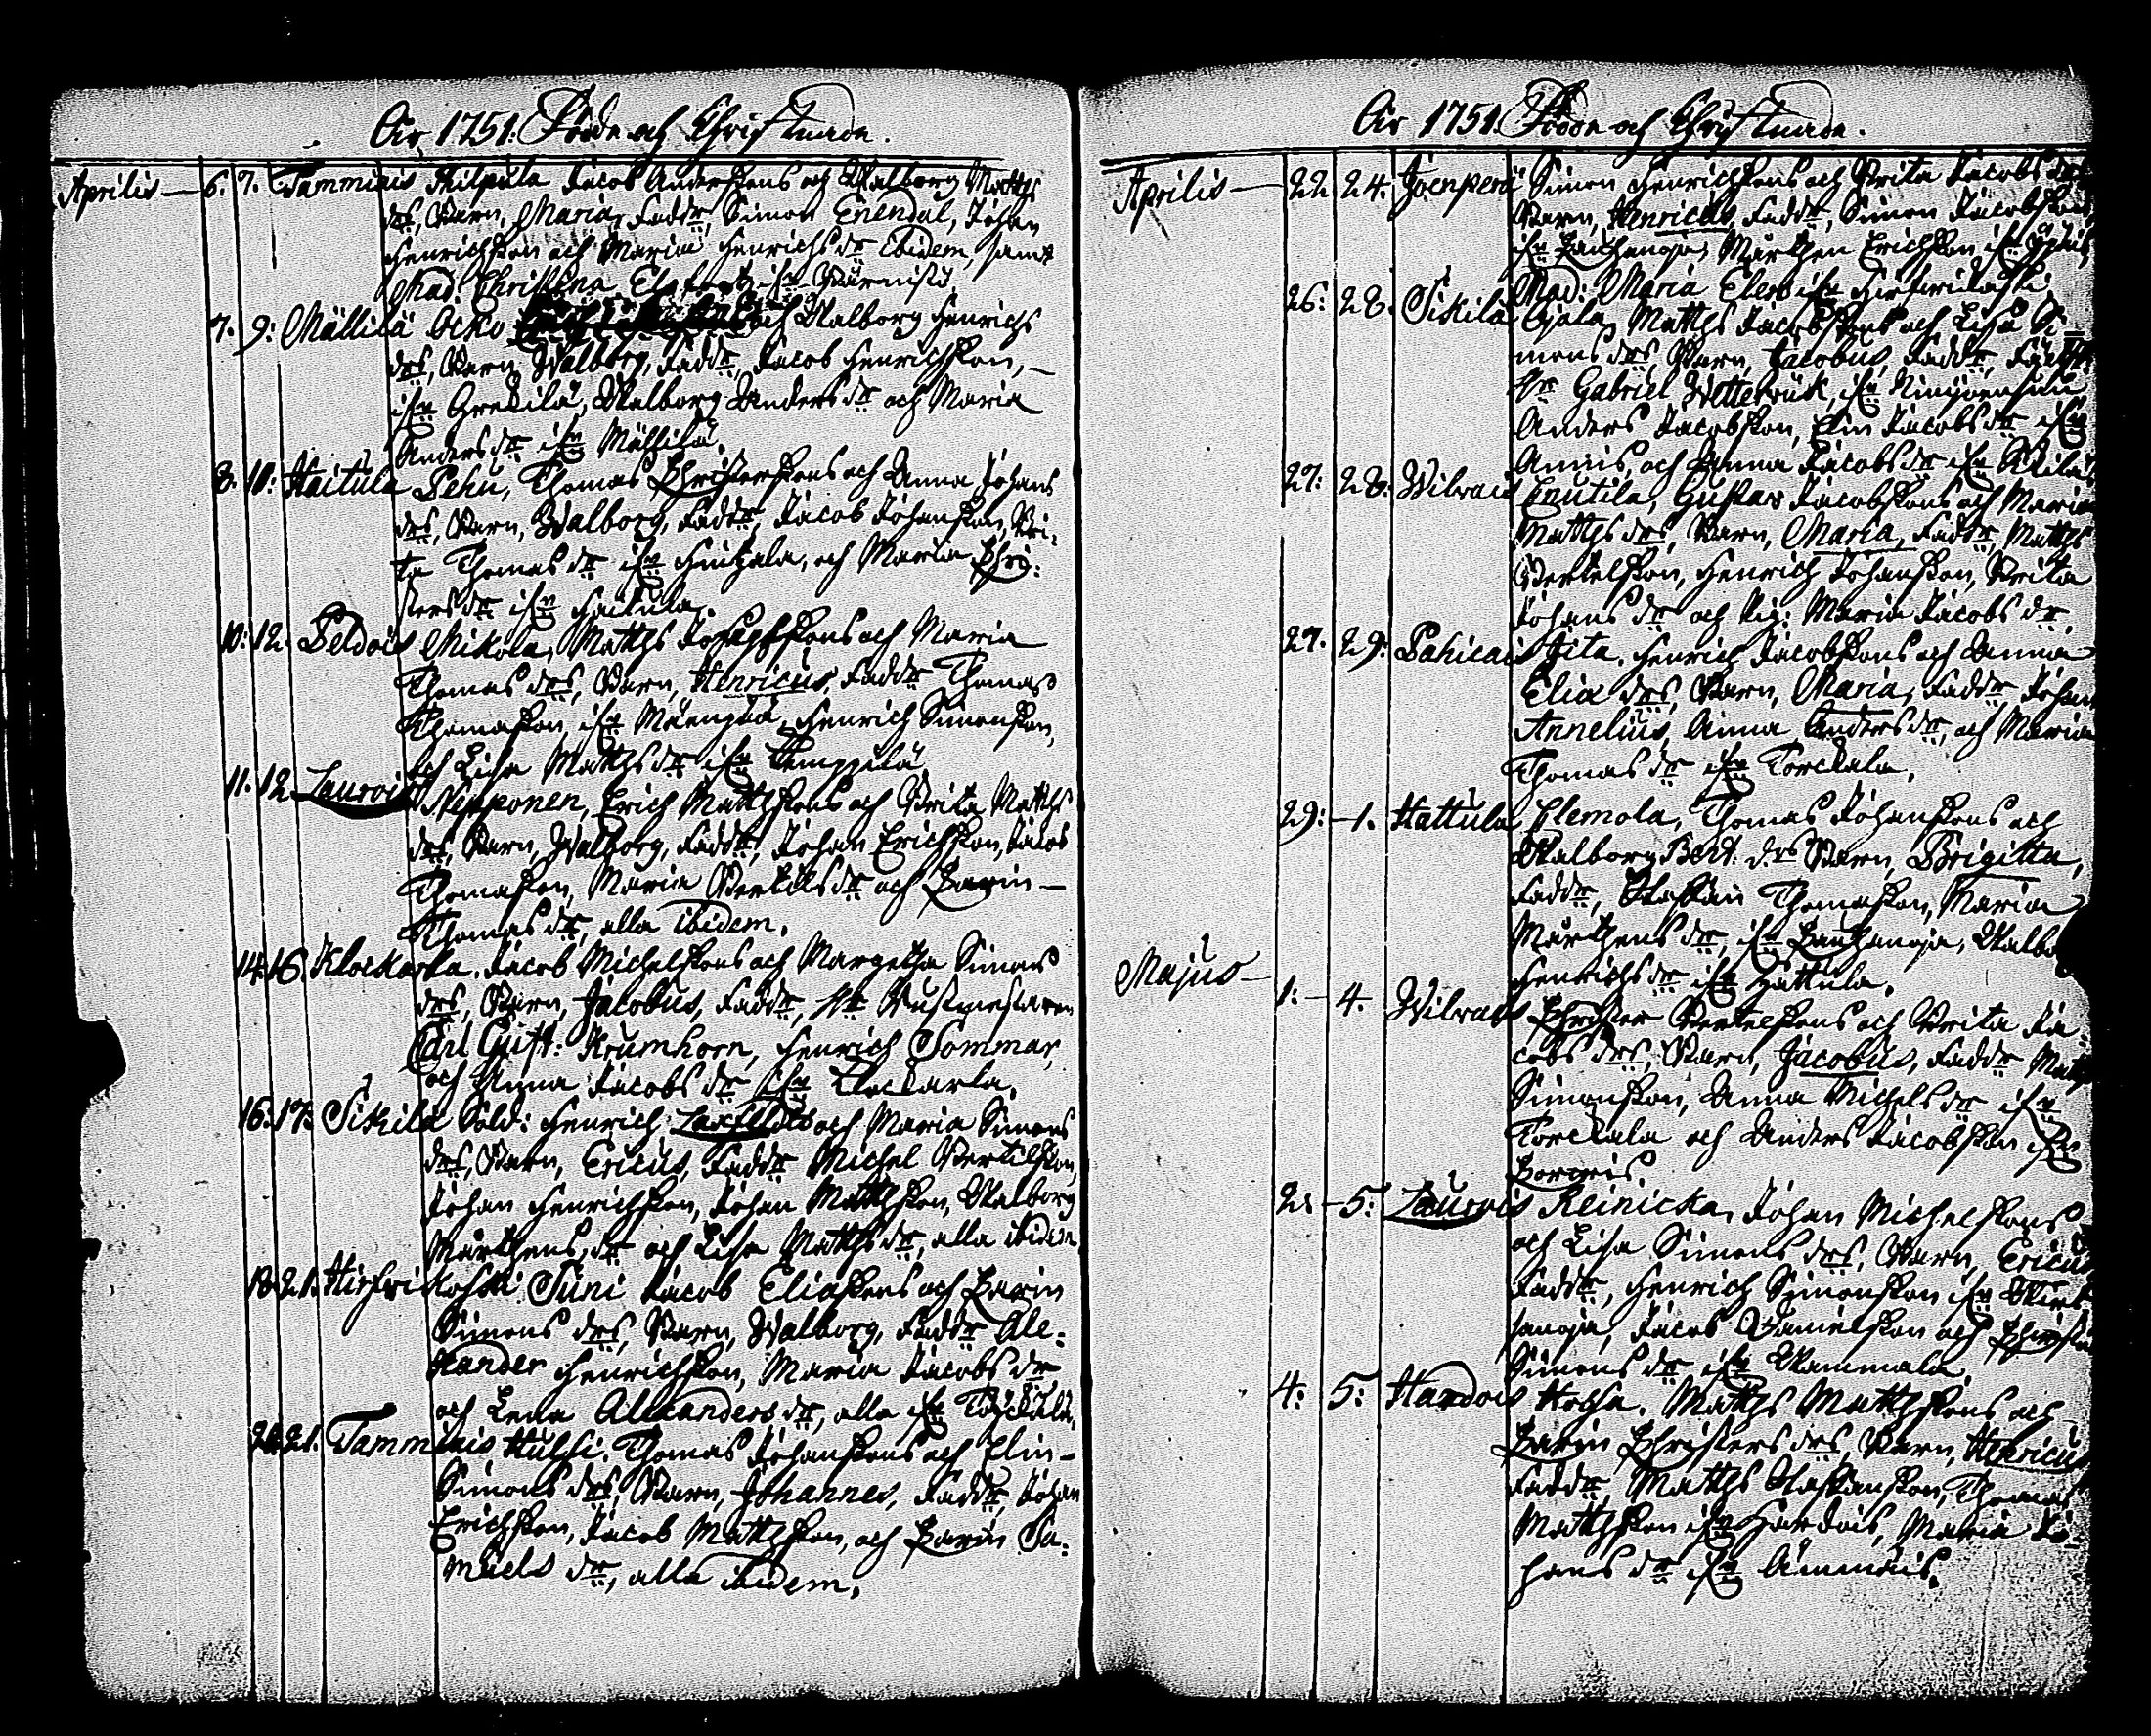 Åhr 1751. Födde och Christnade.
Aprilis — 6. 7. Tammiais Jacob Anderssons och Walborg Matths
drs, Barn, Maria, Faddr, Simon Enendal, Johan
Henrichsson och Maria Henrichs dr Ibidem, samt
Mad. Christina
7. 9: Mällilä Ocko och Walborg Henrichs
drs, Barn, Walborg, Faddr, Jacob Henrichsson, —
ifrn Grekilä, Walborg Anders dr och Maria
Anders dr ifrn Mällilä.
8. 10: Haitula Pehu, Thomas Christerssons och Anna Johans
drs, Barn, Walborg, Faddr, Jacob Johansson, Bri-
ta Thomas dr ifrn och Maria Chri-
sters dr ifrn Haitula.
10: 12. Peldois Mikola, Matths Josephssons och Maria
Thomas drs, Barn, Henricus, Faddr Thomas
Thomasson, ifrn Mäenpää, Henrich Simonsson,
och Lisa Matths dr ifrn Kemppilä
11. 12. Laurois Nepponen, Erich Mattssons och Brita Matths
drs, Barn, Walborg, Faddr, Johan Erichsson, Jacob
Thomasson, Maria Bertils dr och Karin —
Thomas dr, alla ibidem.
14. 16. Klockarla. Jacob Michelssons och Margetha Simons
drs, Barn, Jacobus, Faddr, Hr Rustmestaren
Carl Gust: Krumhorn, Henrich Sommar,
och Anna Jacobs dr ifrn Klockarla.
16. 17. Sikilä Sold: Henrich och Maria Simons
drs, Barn, Ericus, Faddr Michel Bertilsson,
Johan Henrichsson, Johan Mattsson, Walborg
Mårthens dr och Lisa Matths dr, alla ibidem
18. 21. Hirswikoski Suni Jacob Eliassons och Karin
Simons drs, Barn, Walborg, Faddr Ale-
xander Henrichsson, Maria Jacobs dr,
och Lena Alexanders dr, alla ifrn
21. Tammiais Huhsi. Thomas Johanssons och Elin —
Simons drs, Barn, Johannes, Faddr, Johan
Erichsson, Jacob Mattsson, och Karin Sa-
muels dr, alla ibidem.
Åhr 1751. Födde och Christnade.
Aprilis — 22 24. Joenperä Simon Henrichssons och Brita Jacobs drs
Barn, Henricus, Faddr, Simon Jacobsson,
ifrn Mårthen Erichsson ifrn
Mad: Maria ifrn Hirswikoski
26: 28. Sikilä Ojala, Matths Jacobssons och Lisa Si-
mons drs, Barn, Jacobus, Faddr,
Hr Gabriel ifrn
Anders Jacobsson, Elin Jacobs dr ifrn
och Anna Jacobs dr ifrn
27: 28. Wilwais Cnutila, Gustav Jacobssons och Maria
Matths drs, Barn, Maria, Faddr Matths
Bertelsson, Henrich Johansson, Brita
Johans dr och Pig: Maria Jacobs dr.
27. 29: Pahicais Jita. Henrich Jacobssons och Anna
Eliæ drs, Barn, Maria, Faddr Johan
Annelius, Anna Anders dr, och Maria
Thomas dr ifrn Torckala.
29: – 1. Hattula Clemola, Thomas Johanssons och
Walborg Bert. drs Barn, Brigitta,
Faddr, Staffan Thomasson, Maria
Mårthens dr, ifrn Walb
Henrichs dr ifrn Hattula.
Majus — 1: – 4. Wilwais Christer Bertelssons och Brita Ja-
cobs drs, Barn, Jacobus, Faddr
Simonsson, Anna Michels dr ifrn
Torckala och Anders Jacobsson ifrn
2: – 5: Laurois Reinicka, Johan Michelssons
och Lisa Simons drs, Barn, Ericus
Faddr, Henrich Simonsson ifrn
Jacob Danielsson och
Simons dr ifrn Wammala.
4: 5: Hardois Matths Mattssons och
Karin Christers drs, Barn, Henricus
Faddr, Matths Staffansson, Thomas
Mattsson ifrn Hardois, Maria Jo-
hans dr ifrn Äimmäis.